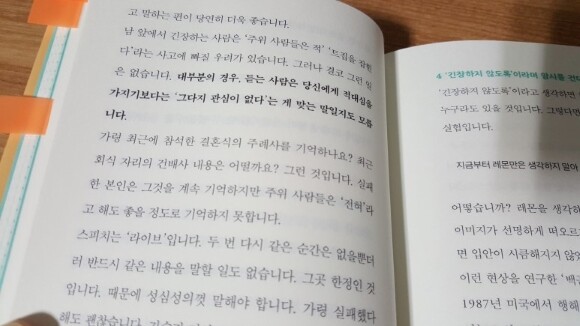 고 말하는 편이 당연히 더욱 좋습니다.
남 앞에서 긴장하는 사람은 ‘주위 사람들은 적’ ‘트집을 잡힌
다’라는 사고에 빠질 우려가 있습니다. 그러나 결코 그런 일
은 없습니다. 대부분의 경우, 듣는 사람은 당신에게 적대심을
가지기보다는 ‘그다지 관심이 없다’는 게 맞는 말일지도 모릅
니다.
가령 최근에 참석한 결혼식의 주례사를 기억하나요? 최근
회식 자리의 건배사 내용은 어떨까요? 그런 것입니다. 실패
한 본인은 그것을 계속 기억하지만 주위 사람들은 ‘전혀’라
고 해도 좋을 정도로 기억하지 못합니다.
스피치는 ‘라이브’입니다. 두 번 다시 같은 순간은 없을뿐더
러 반드시 같은 내용을 말할 일도 없습니다. 그곳 한정인 것
입니다. 때문에 성심성의껏 말해야 합니다. 가령 실패했다
해도 괜찮습니다.
4 ‘긴장하지 않도록’이라며 암시를
‘긴장하지 않도록’이라고 생각하면
누구라도 있을 것입니다. 그렇다면
실험입니다.
지금부터 레몬만은 생각하지 말아
어떻습니까? 레몬을 생각하
이미지가 선명하게 떠오르
면 입안이 시큼해지지 않았
이런 현상을 연구한 ‘백곰
1987년 미국에서 행해